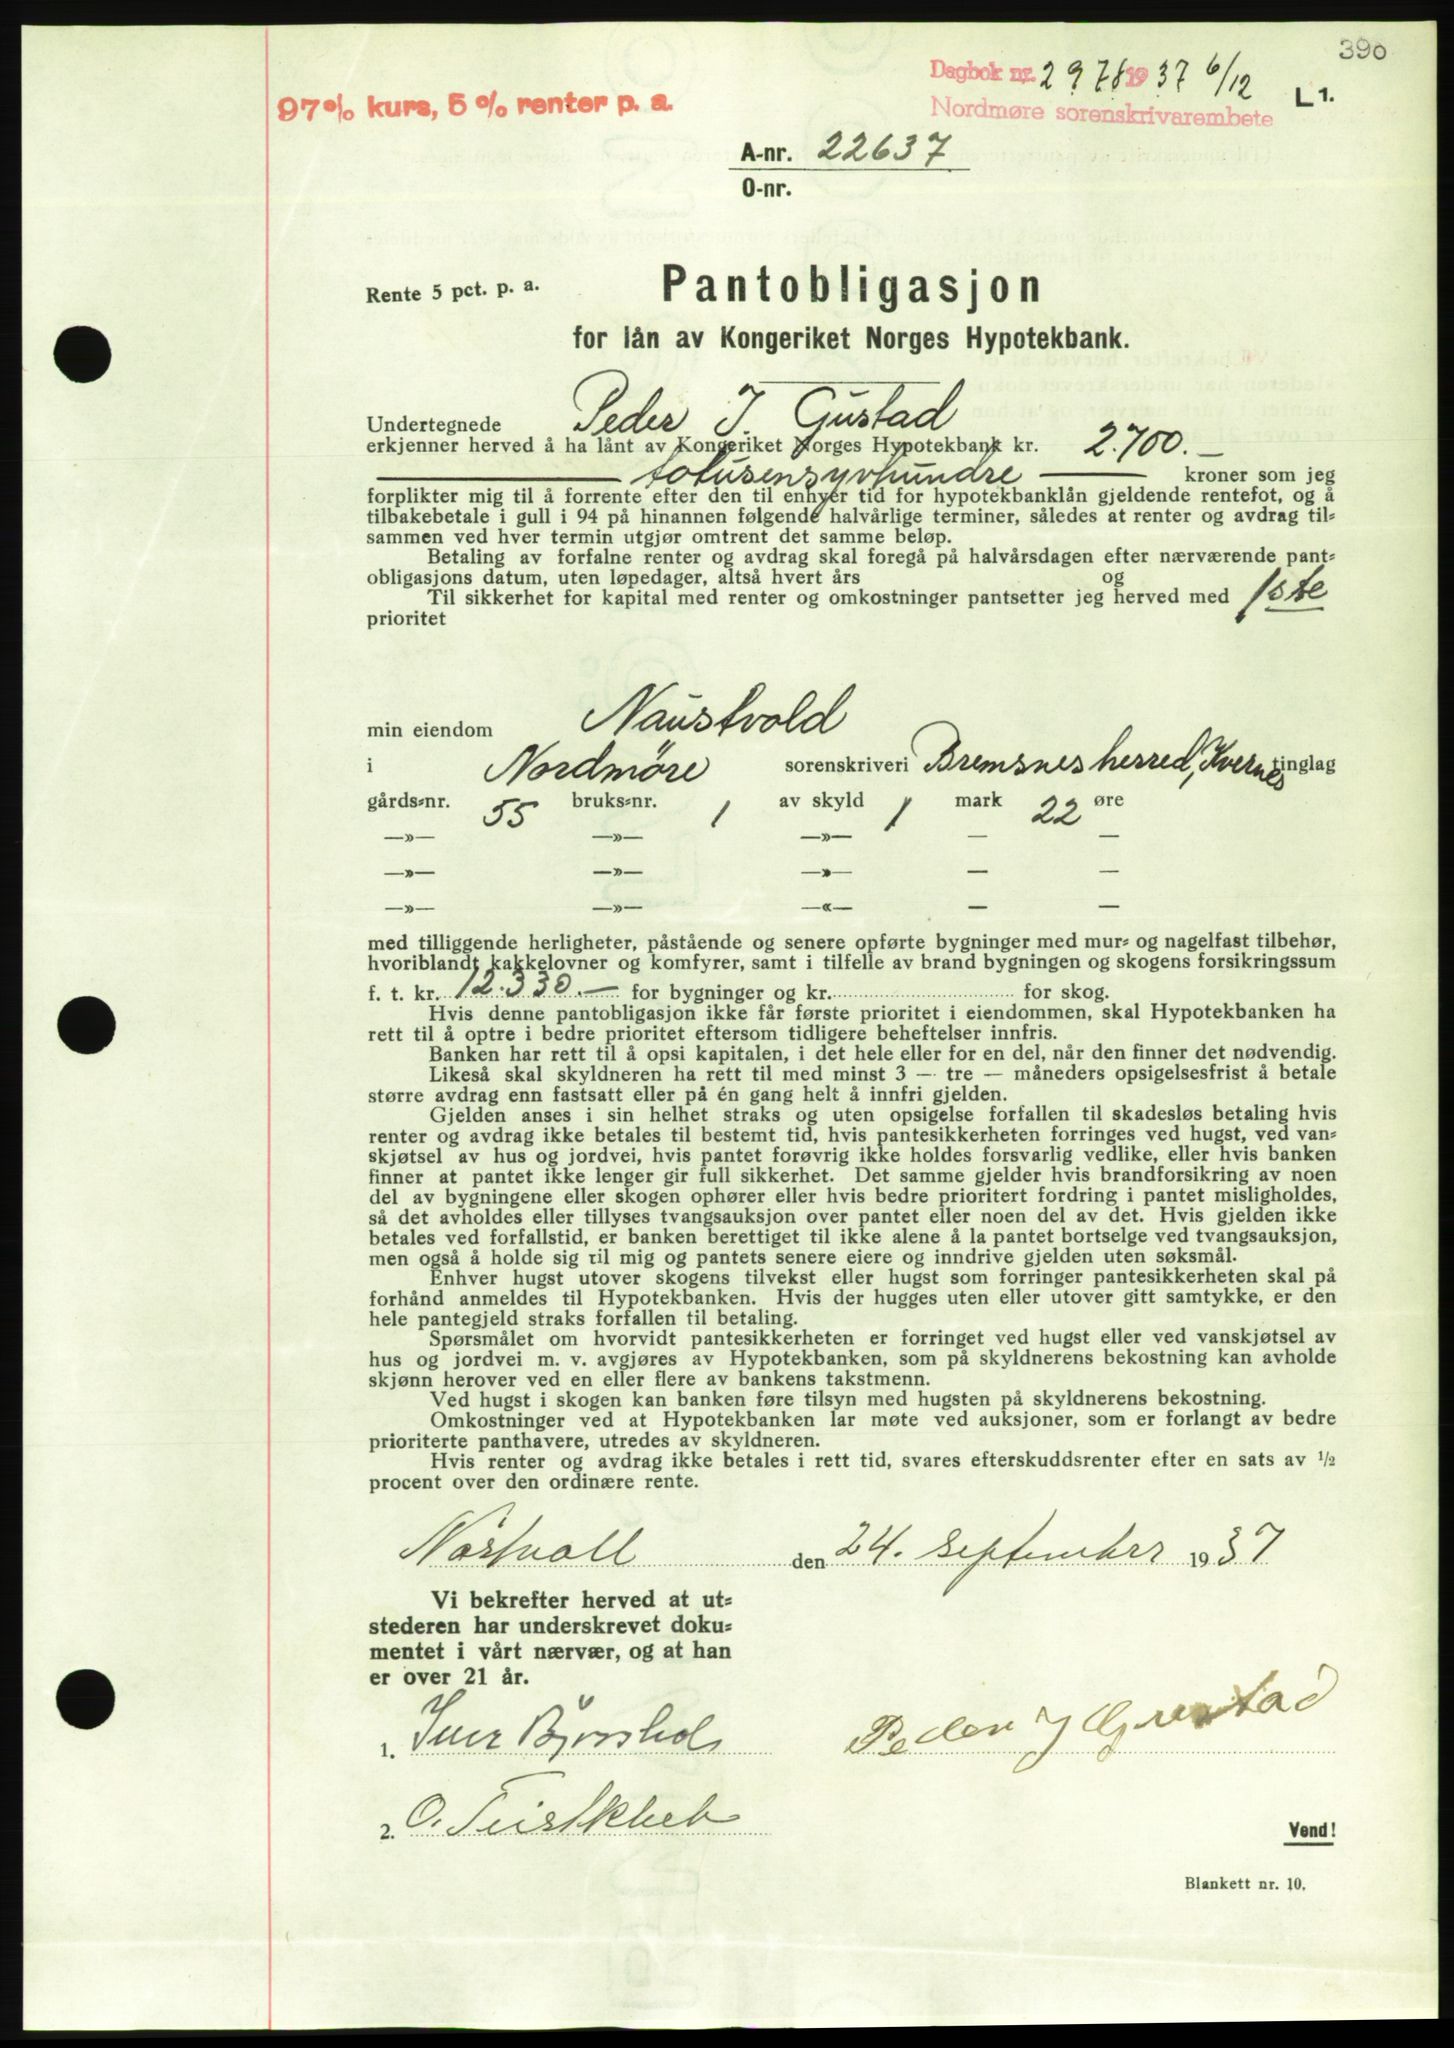 390
Dagbok nr. 2978 1937 6/12
97% kurs, 5% renter p. a.
L 1.
Nordmøre sorenskrivarembete
A-nr. 22637
O-nr.
Rente 5 pct. p. a.
Pantobligasjon
for lån av Kongeriket Norges Hypotekbank.
Undertegnede Peder J. Gustad
erkjenner herved å ha lånt av Kongeriket Norges Hypotekbank kr. 2.700.—
— totusensyvhundre — kroner som jeg
forplikter mig til å forrente efter den til enhver tid for hypotekbanklån gjeldende rentefot, og å
tilbakebetale i gull i 94 på hinannen følgende halvårlige terminer, således at renter og avdrag til=
sammen ved hver termin utgjør omtrent det samme beløp.
Betaling av forfalne renter og avdrag skal foregå på halvårsdagen efter nærværende pant=
obligasjons datum, uten løpedager, altså hvert års og
Til sikkerhet for kapital med renter og omkostninger pantsetter jeg herved med 1ste
prioritet
min eiendom Naustvold
i Nordmøre sorenskriveri Bremsnes herred, Kvernes tinglag
gårds=nr. 55 bruks=nr. 1 av skyld 1 mark 22 øre
—»— —»— —»— — —
—»— —»— —»— — —
—»— —»— —«— — —
med tilliggende herligheter, påstående og senere opførte bygninger med mur= og nagelfast tilbehør,
hvoriblandt kakkelovner og komfyrer, samt i tilfelle av brand bygningen og skogens forsikringssum
f. t. kr. 12.330.— for bygninger og kr. for skog.
Hvis denne pantobligasjon ikke får første prioritet i eiendommen, skal Hypotekbanken ha
rett til å optre i bedre prioritet eftersom tidligere beheftelser innfris.
Banken har rett til å opsi kapitalen, i det hele eller for en del, når den finner det nødvendig.
Likeså skal skyldneren ha rett til med minst 3 — tre — måneders opsigelsesfrist å betale
større avdrag enn fastsatt eller på én gang helt å innfri gjelden.
Gjelden anses i sin helhet straks og uten opsigelse forfallen til skadesløs betaling hvis
renter og avdrag ikke betales til bestemt tid, hvis pantesikkerheten forringes ved hugst, ved van=
skjøtsel av hus og jordvei, hvis pantet forøvrig ikke holdes forsvarlig vedlike, eller hvis banken
finner at pantet ikke lenger gir full sikkerhet. Det samme gjelder hvis brandforsikring av noen
del av bygningene eller skogen ophører eller hvis bedre prioritert fordring i pantet misligholdes,
så det avholdes eller tillyses tvangsauksjon over pantet eller noen del av det. Hvis gjelden ikke
betales ved forfallstid, er banken berettiget til ikke alene å la pantet bortselge ved tvangsauksjon,
men også å holde sig til mig og pantets senere eiere og inndrive gjelden uten søksmål.
Enhver hugst utover skogens tilvekst eller hugst som forringer pantesikkerheten skal på
forhånd anmeldes til Hypotekbanken. Hvis der hugges uten eller utover gitt samtykke, er den
hele pantegjeld straks forfallen til betaling.
Spørsmålet om hvorvidt pantesikkerheten er forringet ved hugst eller ved vanskjøtsel av
hus og jordvei m. v. avgjøres av Hypotekbanken, som på skyldnerens bekostning kan avholde
skjønn herover ved en eller flere av bankens takstmenn.
Ved hugst i skogen kan banken føre tilsyn med hugsten på skyldnerens bekostning.
Omkostninger ved at Hypotekbanken lar møte ved auksjoner, som er forlangt av bedre
prioriterte panthavere, utredes av skyldneren.
Hvis renter og avdrag ikke betales i rett tid, svares efterskuddsrenter efter en sats av ½
procent over den ordinære rente.
den 24. september 1937
Vi bekrefter herved at ut=
stederen har underskrevet doku=
mentet i vårt nærvær, og at han
er over 21 år.
1. Iver
Peder J Gustad
2. O.
Vend!
Blankett nr. 10.